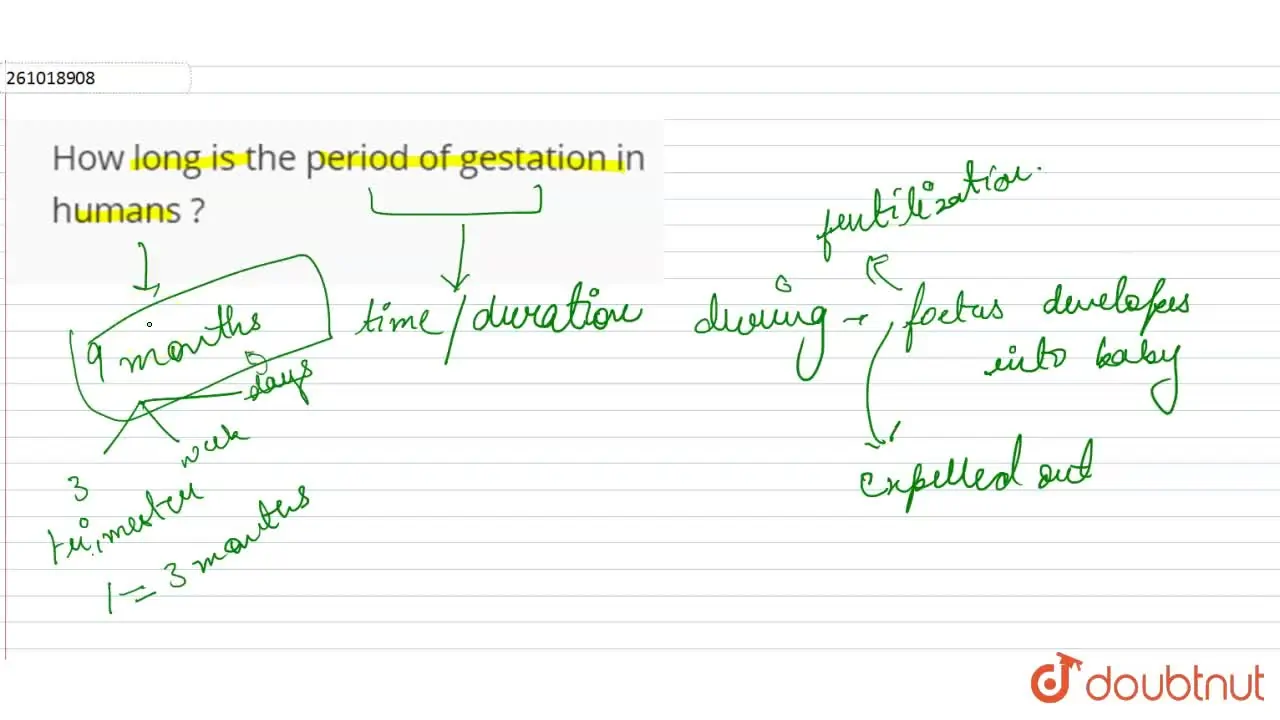 261018908
How long is the period of gestation in
humans ?
fertilization.
9 months
time / duration
during → foetus developes
into baby
days
week
expelled out
3
trimester
1 = 3 months
doubtnut